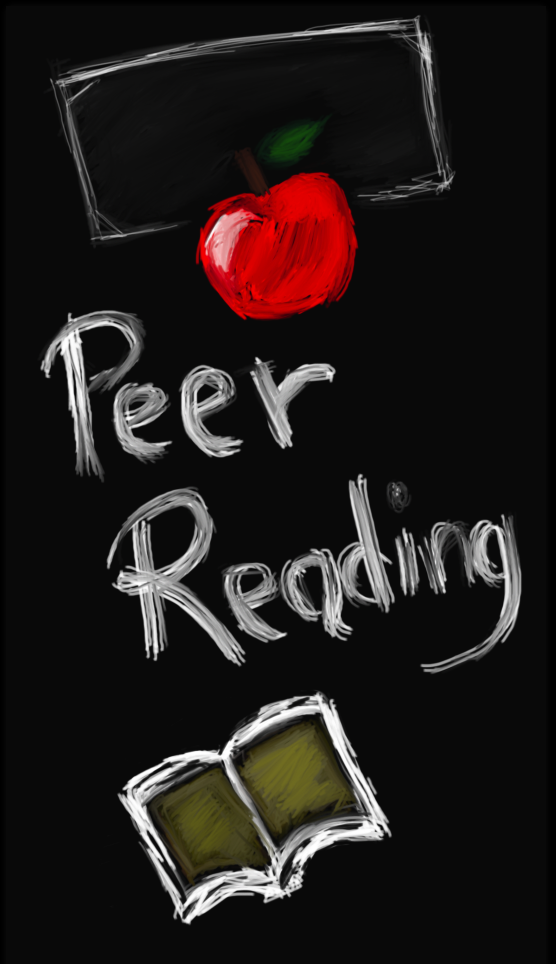 Peer
Reading